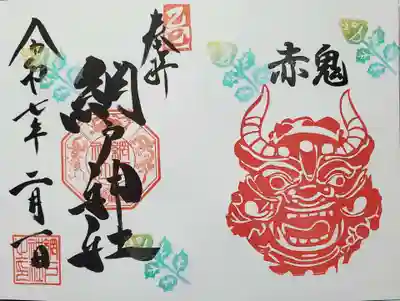 赤鬼
奉拝
網戸神社
令和七年二月一日